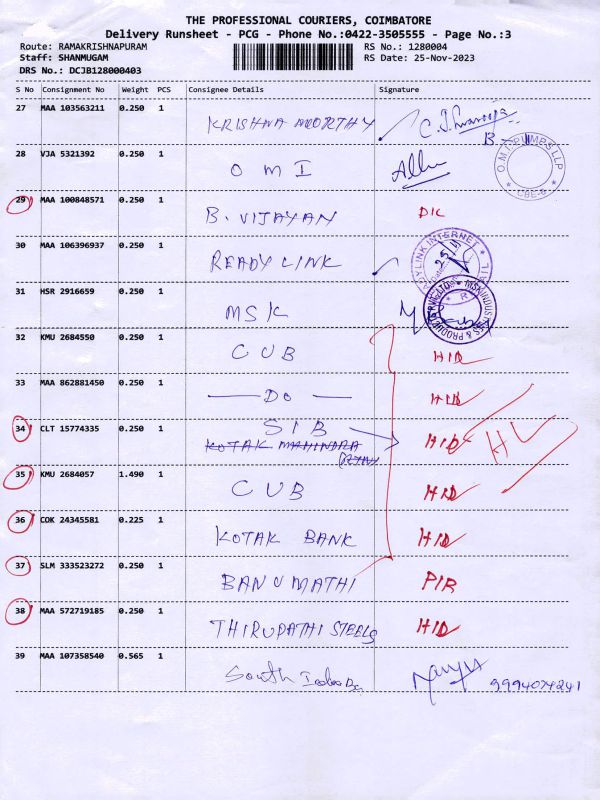 THE PROFESSIONAL COURIERS, COIMBATORE
Delivery Runsheet - PCG - Phone No.:0422-3505555 - Page No.:3
Route: RAMAKRISHNAPURAM RS No.: 1280004
Staff: SHANMUGAM RS Date: 25-Nov-2023
DRS No.: DCJB128000403
S No Consignment No Weight PCS Consignee Details Signature
27 MAA 103563211 0.250 1
KRISHNA MOORTHY
28 VJA 5321392 0.250 1
O M I
O.M.I. PUMPS LLP
* CBE-6 *
29 MAA 100848571 0.250 1
B. VIJAYAN DIC
30 MAA 106396937 0.250 1
READY LINK
31 HSR 2916659 0.250 1
MSK
32 KMU 2684550 0.250 1
CUB HID
33 MAA 862881450 0.250 1
Do HID
34 CLT 15774335 0.250 1
SIB
KOTAK MAHINDRA HID
HL
35 KMU 2684057 1.490 1
CUB HID
36 COK 24345581 0.225 1
KOTAK BANK HID
37 SLM 333523272 0.250 1
BANUMATHI PIR
38 MAA 572719185 0.250 1
THIRUPATHI STEELS HID
39 MAA 107358540 0.565 1
South
9994074241